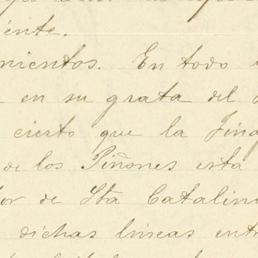 iente.
mientos. En todo
en su grata del
cierto que la Finc
de los Piñones esta
or de Sta Catalin
dichas lineas ent